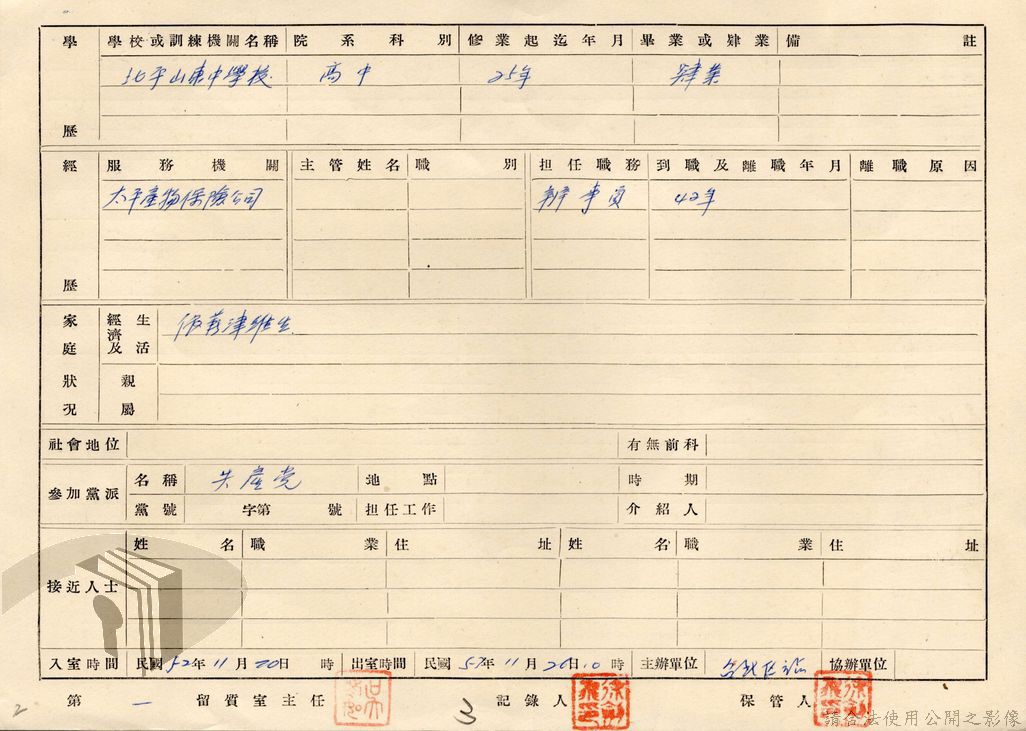 學歷 學校或訓練機關名稱 院系科別 修業起迄年月 畢業或肄業 備註
北平山東中學校 高中 25年 肄業
經歷 服務機關 主管姓名 職別 担任職務 到職及離職年月 離職原因
太平產物保險公司 辦事員 42年
家庭狀況 經濟及生活 依薪津維生
親屬
社會地位 有無前科
參加黨派 名稱 共產党 地點 時期
黨號 字第 號 担任工作 介紹人
接近人士 姓名 職業 住址 姓名 職業 住址
入室時間 民國52年11月20日 時 出室時間 民國52年11月26日10時 主辦單位 協辦單位
第一留質室主任 記錄人 保管人
3
2
請合法使用公開之影像